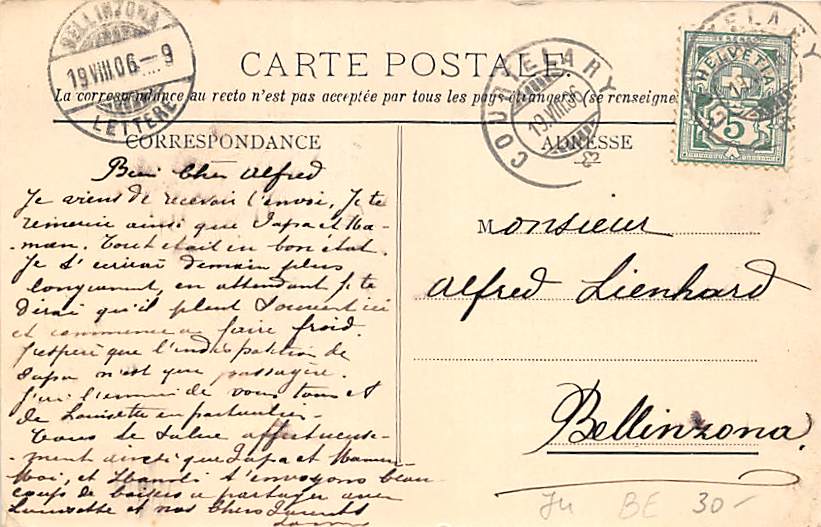 BELLINZONA
19.VIII.06.-9
LETTERE
CARTE POSTALE.
COURTELARY
19.VIII.06
HELVETIA
5
La correspondance au recto n'est pas acceptée par tous les pays étrangers (se renseigne
CORRESPONDANCE
ADRESSE
Bien Cher Alfred
Je viens de recevoir l'envoi, Je te
remercie ainsi que Papa et Ma-
-man. Tout était en bon état.
Je t'écrirai demain plus
longuement, en attendant je te
dirai qu'il pleut souvent ici
et commence a faire froid.
J'espère que l'indisposition de
Papa n'est que passagère.
J'ai l'ennui de vous tous et
de Louisette en particulier.
Tous te salue affectueuse-
-ment ainsi que Papa et Maman
Moi, et t'envoyons beau
coups de baisers a partager avec
Louisette et nos chers Parents
Monsieur
Alfred Lienhard
Bellinzona.
Ju BE 30-